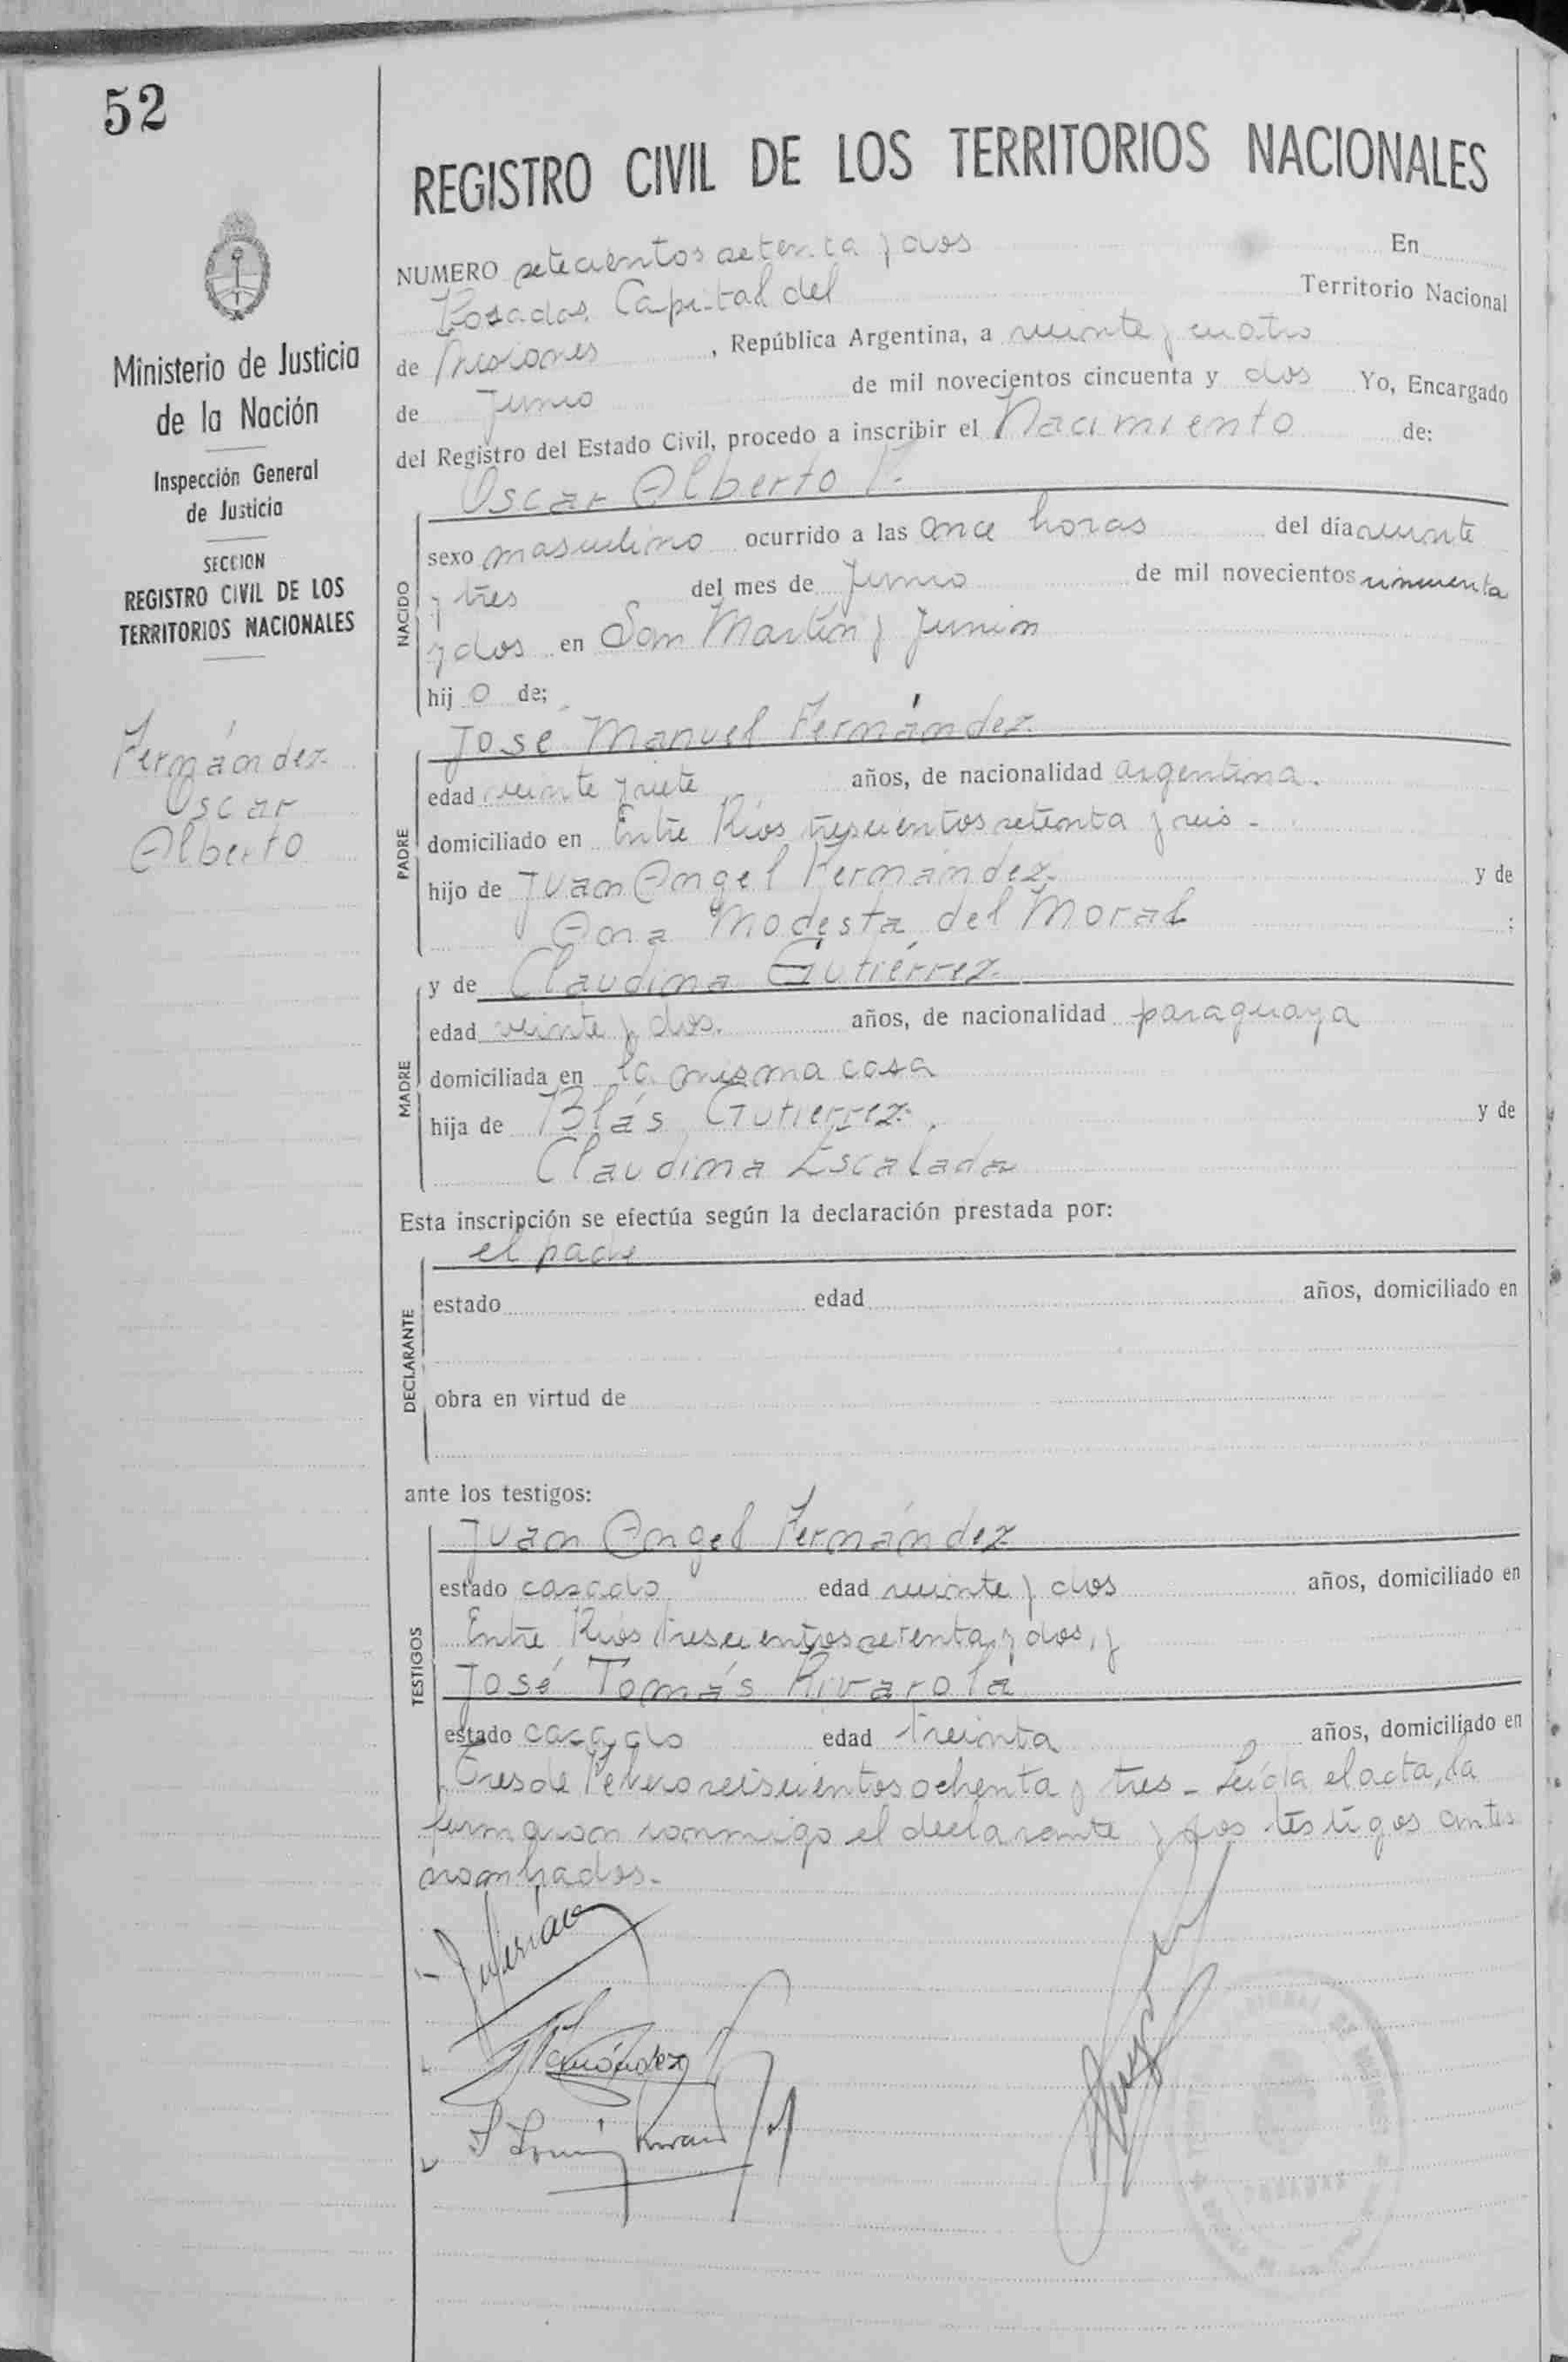 52
REGISTRO CIVIL DE LOS TERRITORIOS NACIONALES
Ministerio de Justicia
de la Nación
Inspección General
de Justicia
SECCION
REGISTRO CIVIL DE LOS
TERRITORIOS NACIONALES
Fernández
Oscar
Alberto
NUMERO setecientos setenta y dos En
Posadas, Capital del Territorio Nacional
de Misiones, República Argentina, a veinte y cuatro
de Junio de mil novecientos cincuenta y dos Yo, Encargado
del Registro del Estado Civil, procedo a inscribir el Nacimiento de:
Oscar Alberto F.
NACIDO
sexo masculino ocurrido a las once horas del día veinte
y tres del mes de Junio de mil novecientos cincuenta
y dos en San Martín y Junin
hij o de:
José Manuel Fernández
PADRE
edad veinte y siete años, de nacionalidad argentina.
domiciliado en Entre Ríos trescientos setenta y seis -
hijo de Juan Angel Fernández y de
Ana Modesta del Moral :
y de Claudina Gutiérrez
MADRE
edad veinte y dos. años, de nacionalidad paraguaya
domiciliada en la misma casa
hija de Blás Gutierrez y de
Claudina Escalada
Esta inscripción se efectúa según la declaración prestada por:
el padre
DECLARANTE
estado edad años, domiciliado en
obra en virtud de
ante los testigos:
Juan Angel Fernández
TESTIGOS
estado casado edad veinte y dos años, domiciliado en
Entre Ríos trescientos setenta y dos, y
José Tomás Rivarola
estado casado edad treinta años, domiciliado en
Tres de Febrero seiscientos ochenta y tres - Leída el acta, la
firmaron conmigo el declarante y los testigos antes
nombrados.-
Fernández
POSADAS